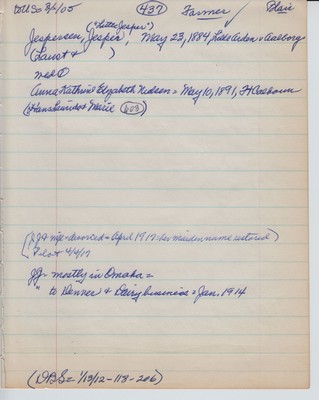 to US 3/1/05 (437) Farmer / Blair
("Little Jesper")
Jespersen, Jesper, May 23, 1884, Aalborg
(Laust & )
md
Anna Kathrine Elizabeth Hudsen = May 10, 1891, Ft Calhoun
(Hans Laurids & Marie (603)
(JJ & wife = divorced = April 1917 = her maiden name restored)
Pilot 4/4/17
JJ = mostly in Omaha =
" to Denver & Dairy business = Jan. 1914
(DBS = 1/19/12-118-206)